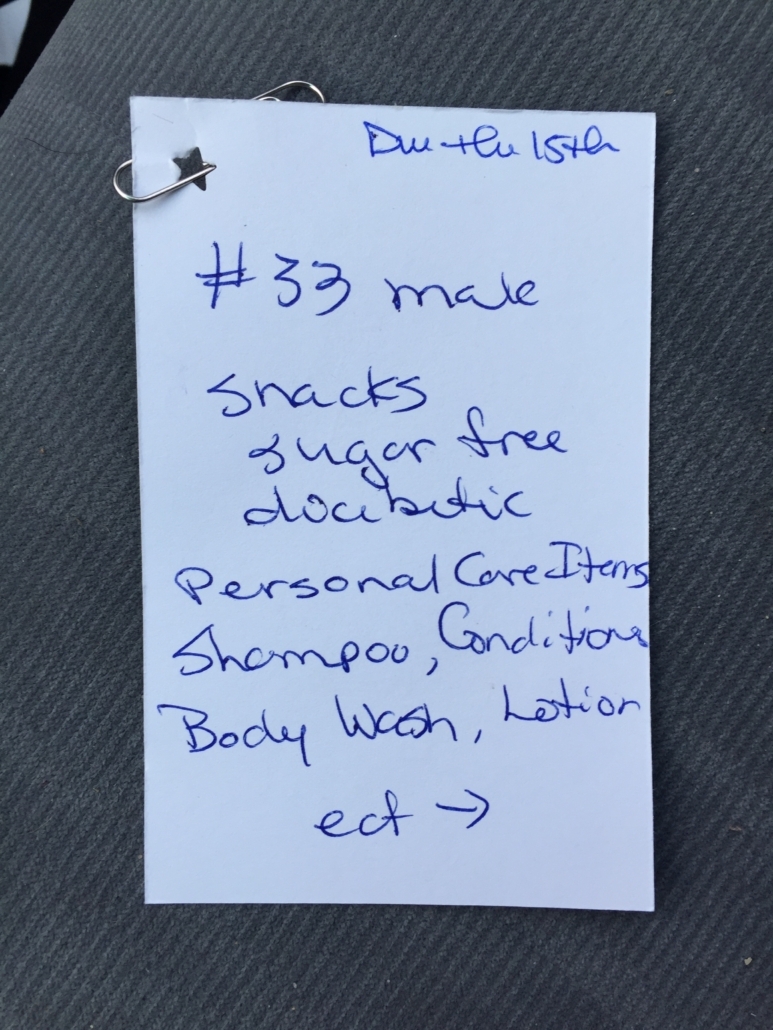 Due the 15th
#33 male
snacks
sugar free
diabetic
Personal Care Items
Shampoo, Conditioner
Body Wash, Lotion
ect →